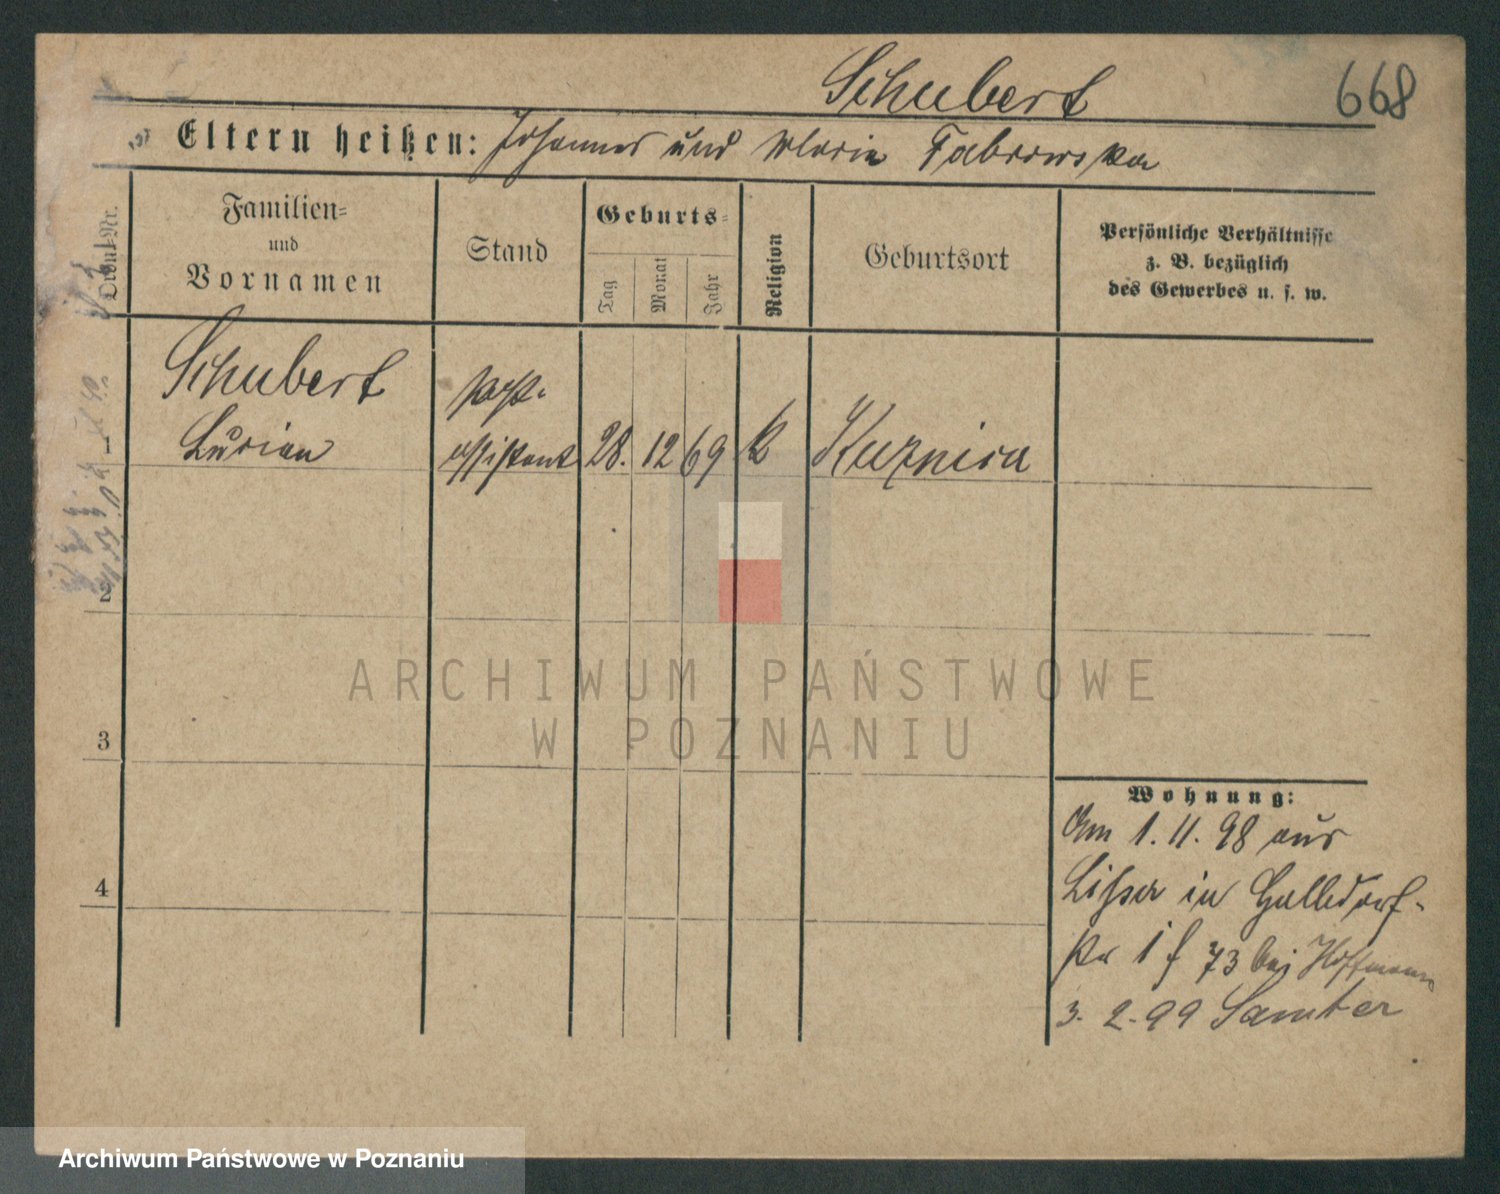 Schubert
668
Eltern heißen: Johannes und Maria Fabrowska
Ordnl-Nr.
Familien-
und
Vornamen
Stand
Geburts-
Tag
Monat
Jahr
Religion
Geburtsort
Persönliche Verhältnisse
z. B. bezüglich
des Gewerbes u. s. w.
Schubert
Lucian
Post-
assistent
28. 12 69
k
Kuznica
2
3
4
Wohnung:
Am 1. 11. 98 aus
Lissa in Halldorf-
str 1 f 73 bei Hoffmann
3. 2. 99 Samter
ARCHIWUM PAŃSTWOWE
W POZNANIU
Archiwum Państwowe w Poznaniu